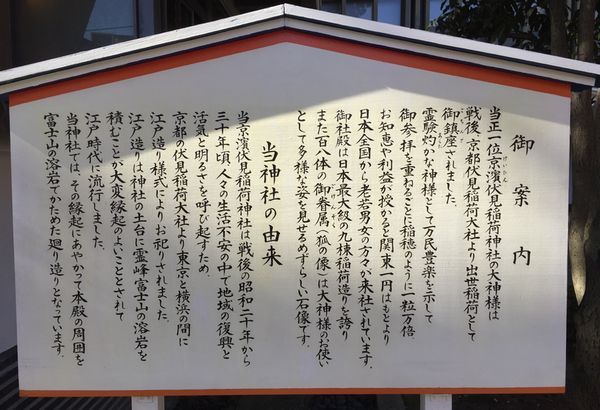 御案内
当正一位京濱伏見稲荷神社の大神様は
戦後、京都伏見稲荷大社より出世稲荷として
御鎮座されました。
霊験灼かな神様として万民豊楽を示して
御参拝を重ねるごとに稲穂のように一粒万倍
お知恵や利益が授かると関東一円はもとより
日本全国から老若男女の方々が来社されています。
御社殿は日本最大級の九棟稲荷造りを誇り
また百八体の御眷属、狐の像は大神様のお使い
として多様な姿を見せるめずらしい石像です。
当神社の由来
当京濱伏見稲荷神社は、戦後の昭和二十年から
三十年頃人々の生活不安の中で地域の復興と
活気と明るさを呼び起すため、
京都の伏見稲荷大社より東京と横浜の間に
江戸造り様式によりお祀りされました。
江戸造りは神社の土台に霊峰富士山の溶岩を
積むことが大変縁起のよいこととされて
江戸時代に流行しました。
当神社では、その縁起にあやかって本殿の周囲を
富士山の溶岩でかためた廻り造りとなっています。